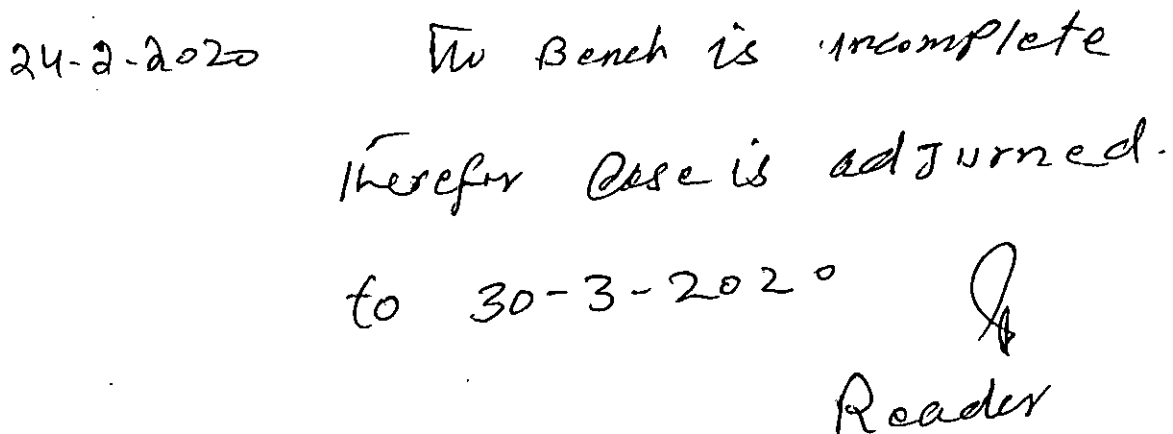 24-2-2020 The Bench is incomplete
Therefor Case is adJurned.
to 30-3-2020
Reader